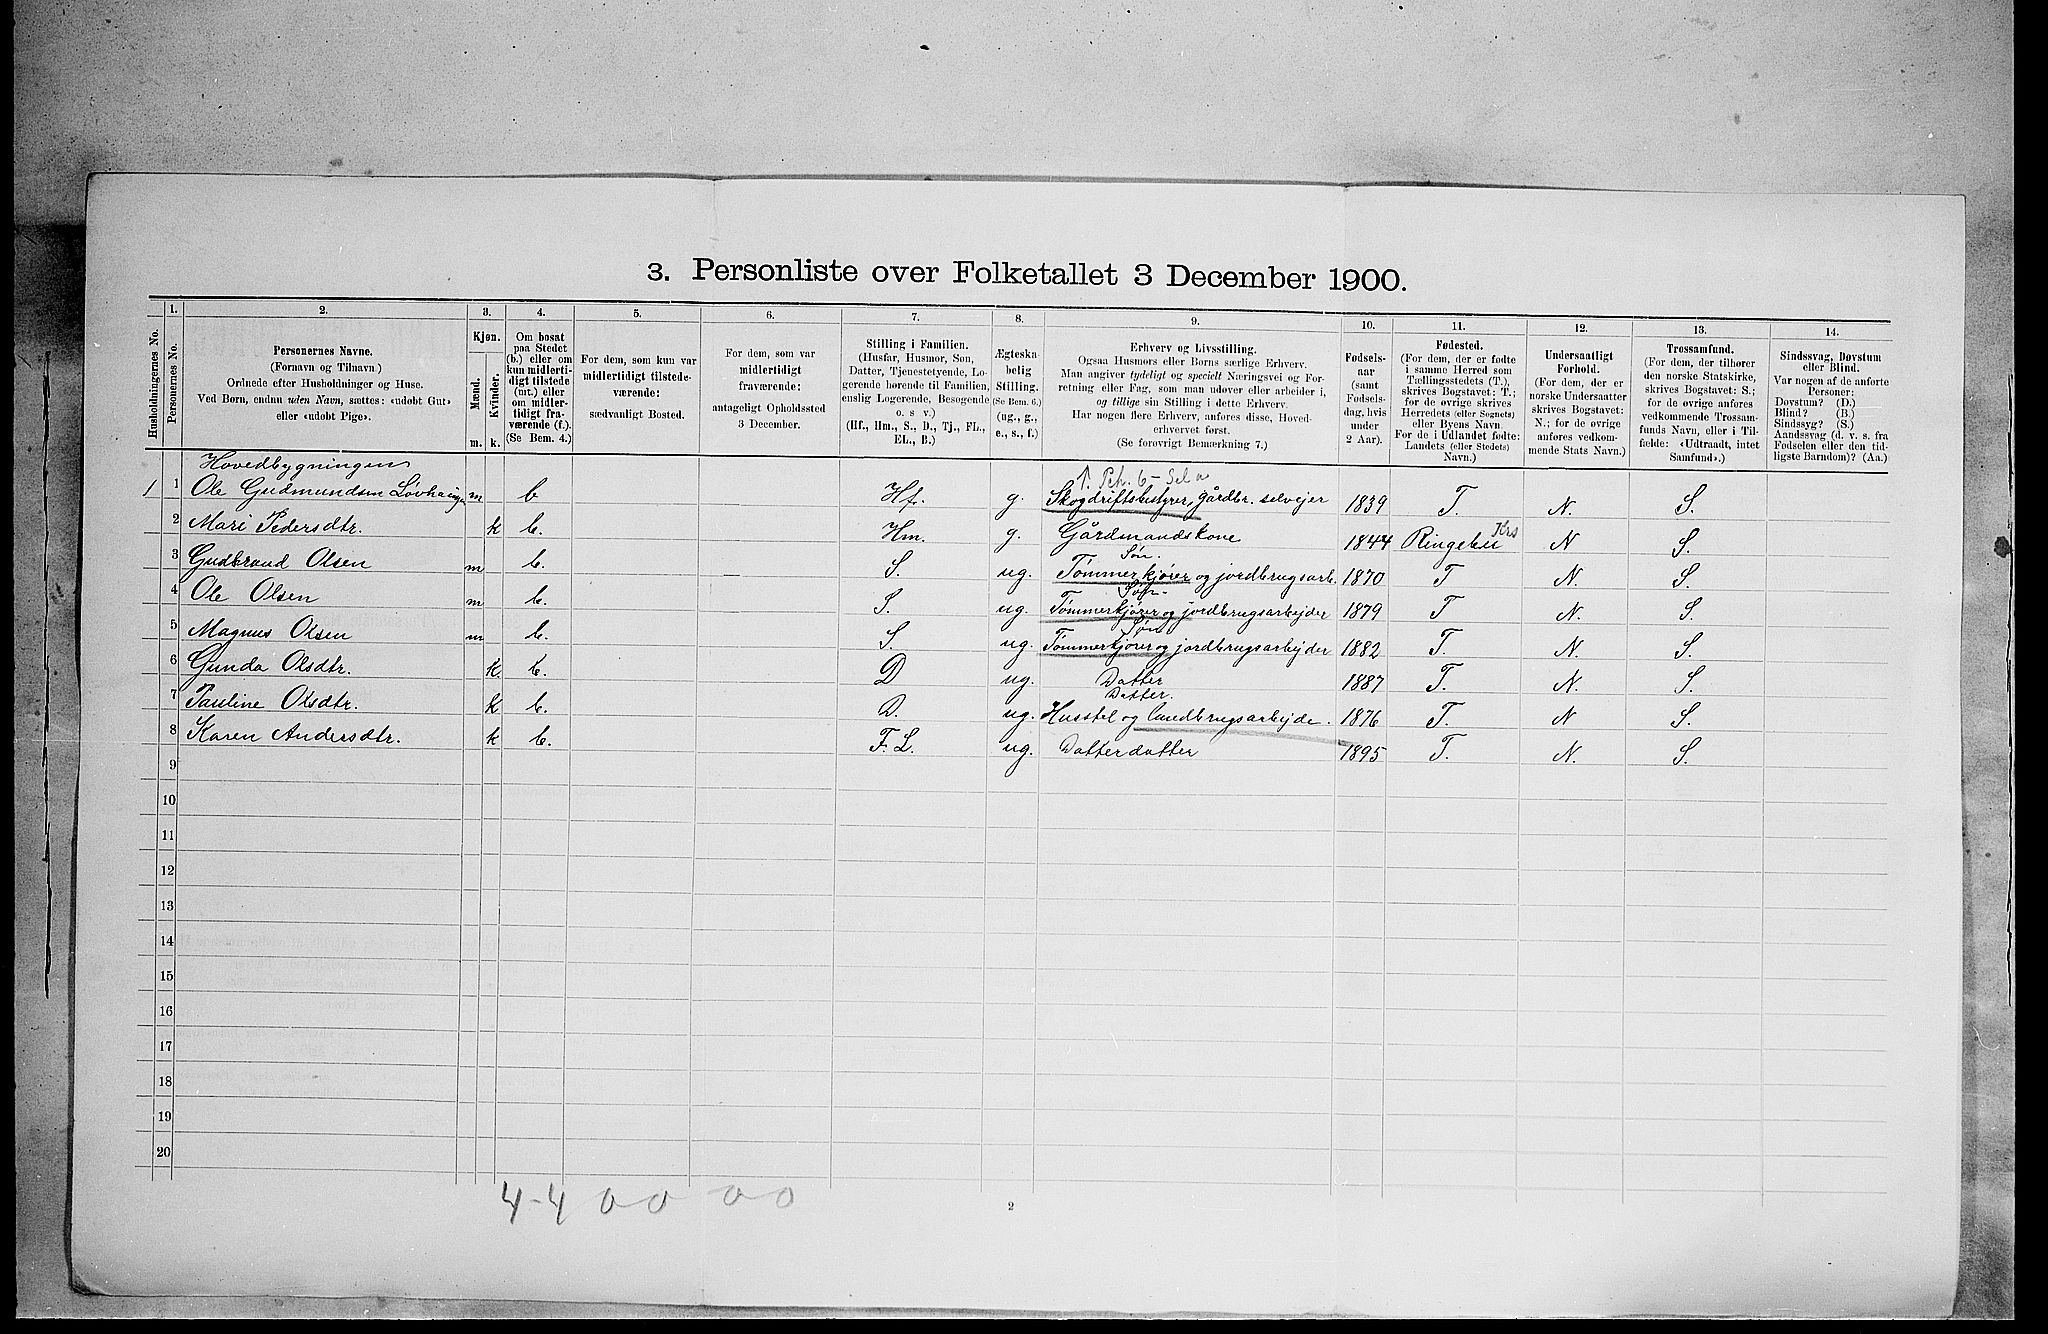 3. Personliste over Folketallet 3 December 1900.
Husholdningernes No.
1.
Personernes No.
2.
Personernes Navne.
(Fornavn og Tilnavn.)
Ordnede efter Husholdninger og Huse.
Ved Børn, endnu uden Navn, sættes: «udøbt Gut»
eller «udøbt Pige».
3.
Kjøn.
Mænd.
m.
Kvinder.
k.
4.
Om bosat
paa Stedet
(b.) eller om
kun midlerti-
digt tilstede
(mt.) eller
om midler-
tidigt fra-
værende (f.).
(Se Bem. 4.)
5.
For dem, som kun var
midlertidigt tilstede-
værende:
sædvanligt Bosted.
6.
For dem, som var
midlertidigt
fraværende:
antageligt Opholdssted
3 December.
7.
Stilling i Familien.
(Husfar, Husmor, Søn,
Datter, Tjenestetyende, Lo-
gerende hørende til Familien,
enslig Logerende, Besøgende
o. s. v.)
(Hf., Hm., S., D., Tj., FL.,
EL., B.)
8.
Ægteska-
belig
Stilling.
(Se Bem. 6.)
(ug., g.,
e., s., f.)
9.
Erhverv og Livsstilling.
Ogsaa Husmors eller Børns særlige Erhverv.
Man angiver tydeligt og specielt Næringsvei og For-
retning eller Fag, som man udøver eller arbeider i,
og tillige sin Stilling i dette Erhverv.
Har nogen flere Erhverv, anføres disse, Hoved-
erhvervet først.
(Se forøvrigt Bemærkning 7.)
10.
Fødsels-
aar
(samt
Fødsels-
dag, hvis
under
2 Aar).
11.
Fødested.
(For dem, der er fødte
i samme Herred som
Tællingsstedets (T.),
skrives Bogstavet: T.;
for de øvrige skrives
Herredets (eller Sognets)
eller Byens Navn.
For de i Udlandet fødte:
Landets (eller Stedets)
Navn.)
12.
Undersaatligt
Forhold.
(For dem, der er
norske Undersaatter
skrives Bogstavet:
N.; for de øvrige
anføres vedkom-
mende Stats Navn.)
13.
Trossamfund.
(For dem, der tilhører
den norske Statskirke,
skrives Bogstavet: S.;
for de øvrige anføres
vedkommende Trossam-
funds Navn, eller i Til-
fælde: «Udtraadt, intet
Samfund».)
14.
Sindssvag, Døvstum
eller Blind.
Var nogen af de anførte
Personer:
Døvstum? (D.)
Blind? (B.)
Sindssyg? (S.)
Aandssvag (d. v. s. fra
Fødselen eller den tid-
ligste Barndom)? (Aa.)
Hovedbygningen
1 1 Ole Gudmundsen Løvhaugen m b Hf. g. Skogdriftsbestyrer, gårdbr. selveier 1839 T. N. S.
2 Mari Pedersdtr. k b. Hm. g. Gårdmandskone 1844 Ringebu Krs N S.
Søn.
3 Gudbrand Olsen m b. S. ug. Tømmerkjører og jordbrugsarb. 1870 T N. S.
Søn.
4 Ole Olsen m b. S. ug. Tømmerkjører og jordbrugsarbejder 1879 T N. S.
Søn
5 Magnus Olsen m b. S. ug. Tømmerkjører og jordbrugsarbejder 1882 T. N. S.
6 Gunda Olsdtr. k. b. D ug. Datter 1887 T. N. S.
Datter.
7 Pauline Olsdtr. k b. D. ug. Husstel og landbrugsarbejde. 1876 T. N S.
8 Karen Andersdtr. k b. F.L. ug. Datterdatter 1895 T. N. S.
9
10
11
12
13
14
15
16
17
18
19
20
4-4 00 00
2